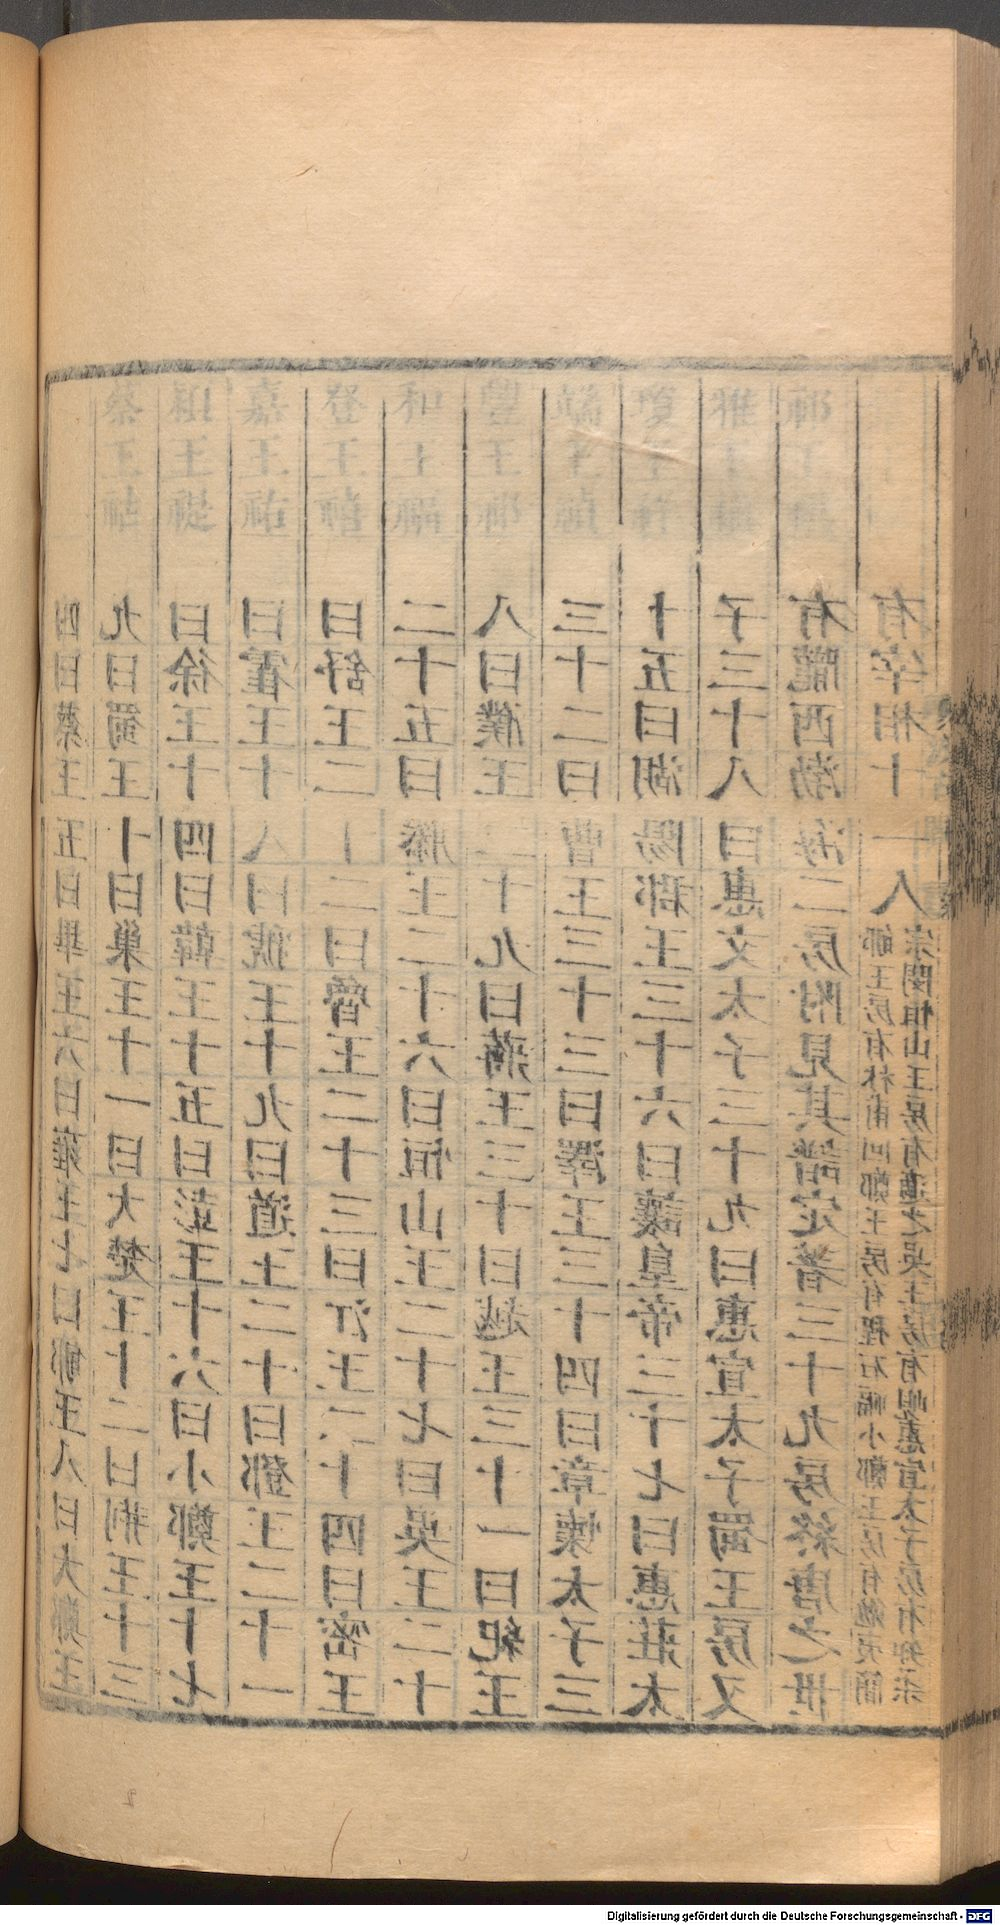 雅王禛
瓊王祥
端王禎
豐王祁
和王福
登王禧
嘉王祐
王禔
蔡王祜
四曰蔡王五曰畢王六曰雍王七曰郇王八曰大鄭王
九曰蜀王十曰巢王十一曰大楚王十二曰荆王十三
曰徐王十四曰韓王十五曰彭王十六曰小鄭王十七
曰霍王十八曰虢王十九曰道王二十曰鄧王二十一
曰舒王二十二曰魯王二十三曰江王二十四曰密王
二十五曰滕王二十六曰恒山王二十七曰吳王二十
八曰濮王二十九曰蔣王三十曰越王三十一曰紀王
三十二曰曹王三十三曰澤王三十四曰章懷太子三
十五曰湖陽郡王三十六曰讓皇帝三十七曰惠莊太
子三十八曰惠文太子三十九曰惠宣太子蜀王房又
有隴西渤海二房附見其譜定著三十九房終唐之世
有宰相十一人
郇王房有林甫回鄭王房有程石福小鄭王房有勉夷簡
宗閔恒山王房有適之吳王房有峴惠宣太子房有知柔
Digitalisierung gefördert durch die Deutsche Forschungsgemeinschaft - DFG